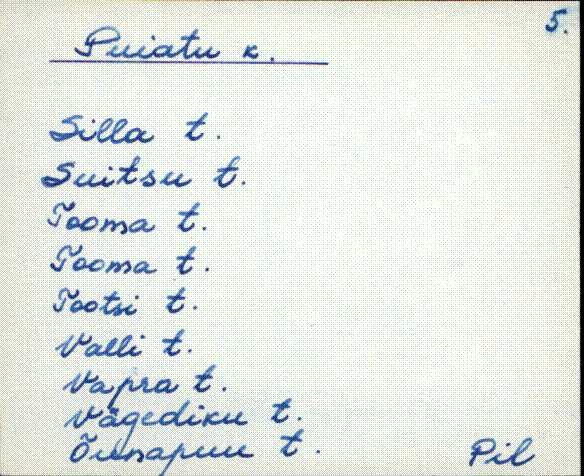 5.
Puiatu k.
Silla t.
Suitsu t.
Tooma t.
Tooma t.
Tootsi t.
Valli t.
Vapra t.
Vägediku t.
Õunapuu t.
Pil